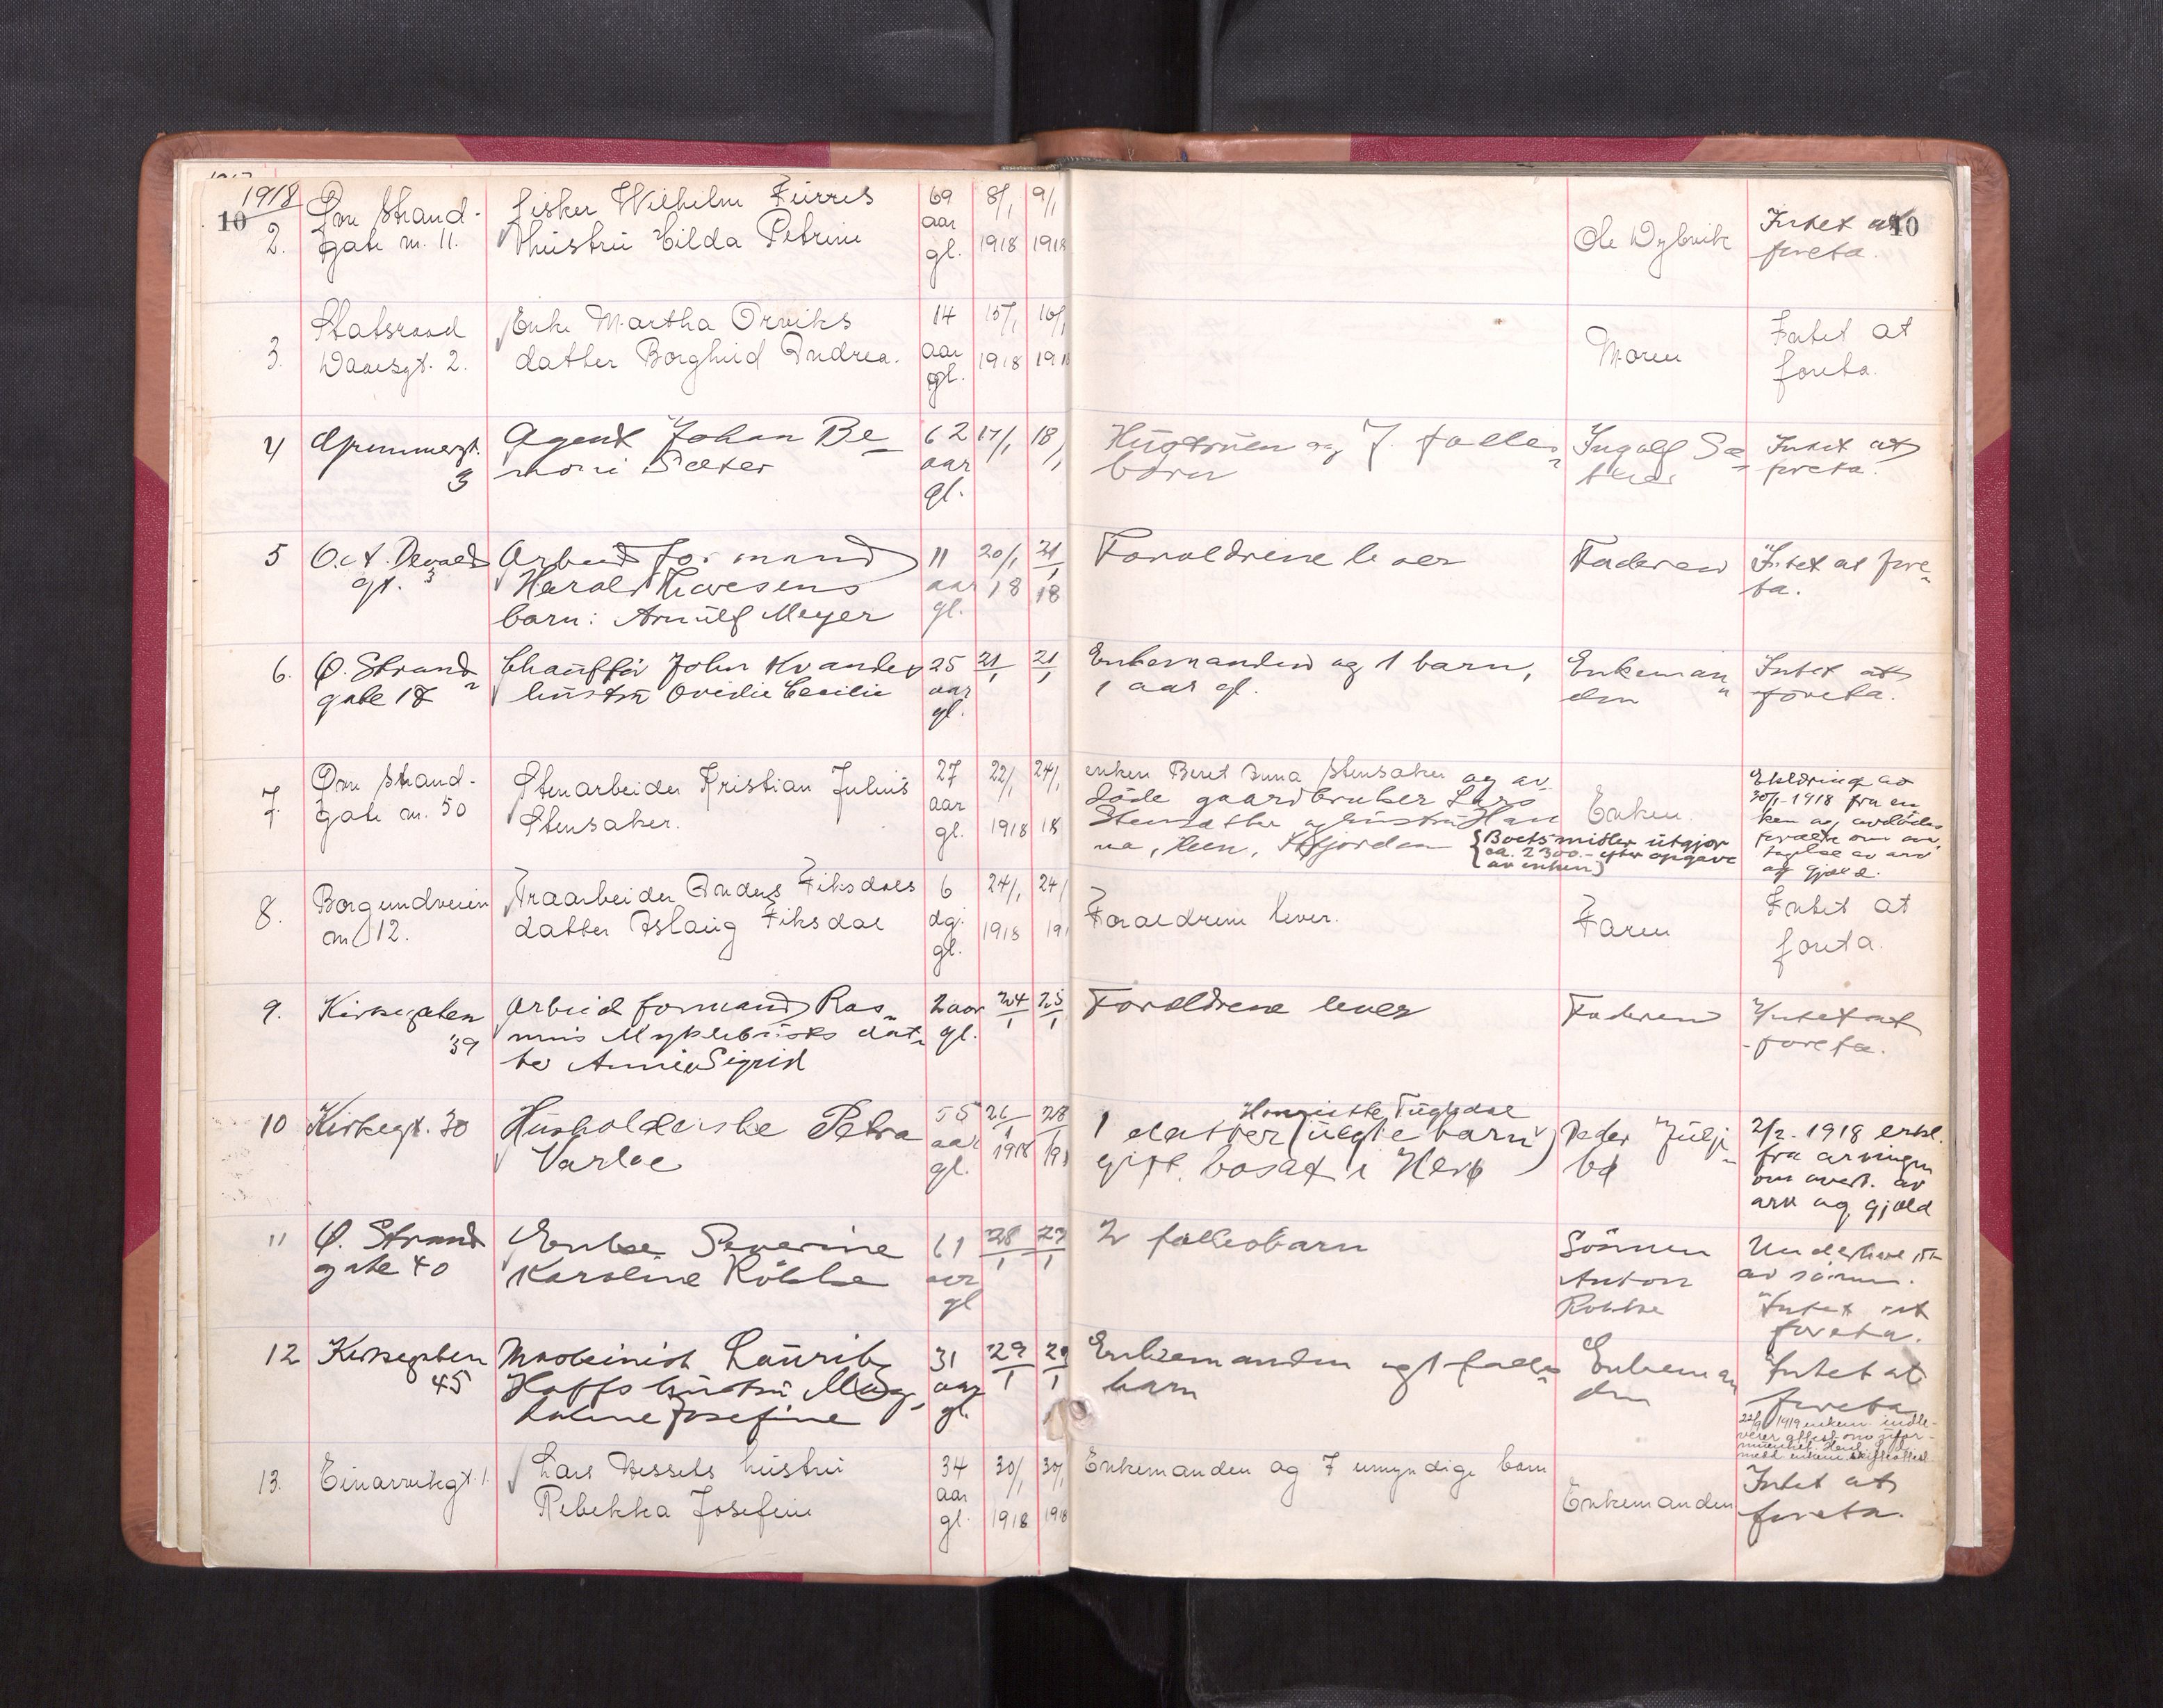 1918
10
2.
Øvre Strand-
gate nr. 11.
fisker Wilhelm Furres
hustru Hilda Petrine
69
aar
gl.
8/1
1918
9/1
1918
Ole Dybvik
Intet at
foreta.
10
3.
Statsraad
Daaesgt. 2.
Enke Martha Orviks
datter Borghild Andrea.
14
aar
gl.
15/1
1918
16/1
1918
Moren
Intet at
foreta.
4
3
Agent Johan Be-
moni Sæter
62
aar
gl.
17/1
18/1
Hustruen og 7 fælles
børn
Ingolf Sæ-
Intet at
foreta.
5
O. A. Devolds
gt. 3
Arbeidsformand
Harald Iversens
barn: Arnulf Meyer
11
aar
gl.
20/1
18
21/1
18
Forældrene lever
Faderen
Intet at fore-
ta.
6.
Ø. Strand-
gate 18
Chauffør John Kvandes
hustru Ovidie Cecilie
25
aar
gl.
21/1
21/1
Enkemanden og 1 barn,
1 aar gl.
Enkeman-
den
Intet at
foreta.
7.
Øvre Strand-
gate nr. 50
Stenarbeider Kristian Julius
Stensaker.
27
aar
gl.
22/1
1918
24/1
18
enken Beret Anna Stensaker og av-
døde gaardbruker Lars
og hustru Han-
na, Isfjorden
{Boets midler utgjør
ca. 2300.- efter opgave
av enken}
Enken.
Erklæring av
30/1-1918 fra en-
ken og avdødes
forældre om over-
tagelse av arv
og gjæld.
8.
Borgundveien
nr 12.
Fraarbeider Anders Fiksdals
datter Aslaug Fiksdal
6
dg.
gl.
24/1
1918
24/1
191
Forældrene lever.
Faren
Intet at
foreta.
9.
Kirkegaten
39
Arbeidsformand Ras-
mus Myklebusts dat-
ter Annie Sigrid
2 aar
gl.
24/1
25/1
Forældrene lever
Faderen
Intet at
foreta.
10
Kirkegt. 30
Husholderske Petra
Vartdal
55
aar
gl.
26/1
1918
28/1
191
Henriette Fugledal
1 datter (uegte barn)
gift, bosat i Herø
Peder Julje-
bø
2/2-1918 erkl.
fra arvingen
om overt. av
arv og gjæld
11
Ø. Strand
gate 40
Enke Severine
Karoline Røbbe
61
aar
gl
28/1
29/1
2 fællesbarn
Sønnen
Anton
Underholdt
av sønnen.
Intet at
foreta.
12
Kirkegaten
45
Maskinist Laurits
Hoffs hustru Mag-
dalene Josefine
31
aar
gl.
29/1
29/1
Enkemanden og 1 fælles
barn
Enkeman
den
Intet at
foreta
22/9 1919 enkem. indle-
verer attest om ufor-
13.
Einarvikgt. 1.
Lars Nessets hustru
Rebekka Josefine
34
aar
gl.
30/1
1918
30/1
1918
Enkemanden og 7 umyndige barn
Enkemanden
Intet at
foreta.